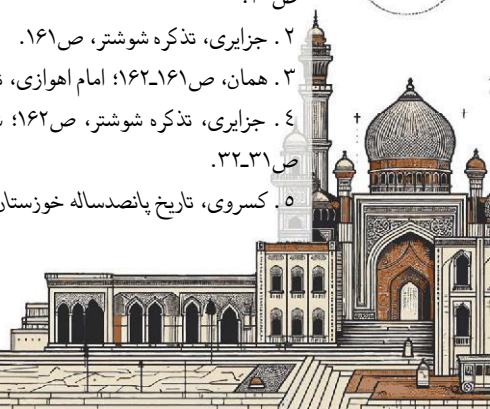 ۲. جزایری، تذکره شوشتر، ص۱۶۱.
۳. همان، ص۱۶۱ـ۱۶۲؛ امام اهوازی،
٤. جزایری، تذکره شوشتر، ص۱۶۲؛
ص۳۱ـ۳۲.
٥. کسروی، تاریخ پانصدساله خوزستان